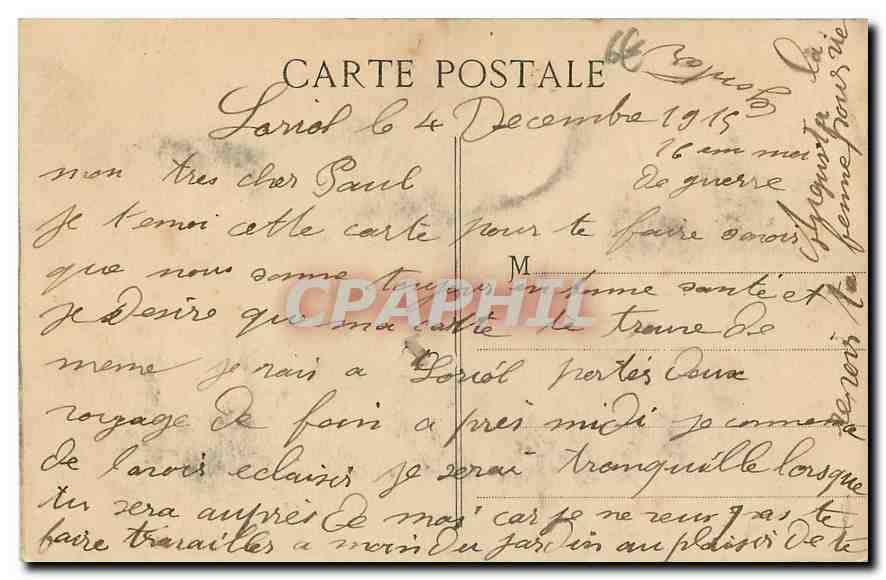 6€
CARTE POSTALE
Loriol le 4 Decembre 1915
16 em moi
de guerre
mon tres cher Paul
je t'emoi cette carte pour te faire savoir
que nous somme toujour en bonne santé et
M
je desire que ma carte te trouve de
meme je vais a Loriol portés deux
voyage de foin a près midi je commence
de lavoir eclaisir je serai tranquille lorsque
tu sera auprès de moi car je ne veux pas te
faire travailler a moin du jardin au plaisir de te
revoir la femme pour vie
Augusta la
CPAPHIL